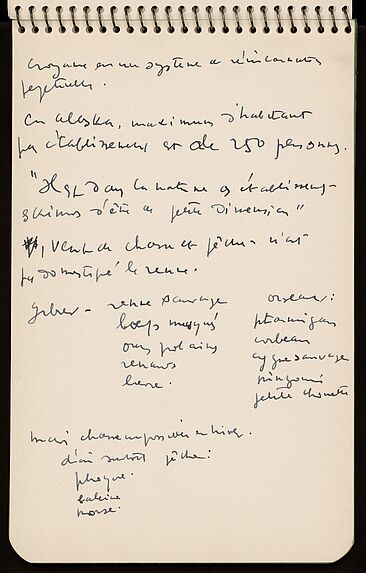 Croyance en un système de réincarnation
perpétuelle.
En Alaska, maximum d'habitant
par établissement est de 250 personnes.
"Il est dans la nature des établissements
eskimos d'être de petite dimension"
, vent de chasse et pêche - n'ont
pas domestiqué le renne.
gibier - renne sauvage oiseaux :
boeufs musqués ptarmigans
ours polaires corbeau
renards cygne sauvage
lièvre. pingouin
petite chouette
mais chasse impossible en hiver.
d'où surtout pêche :
phoque.
baleine
morse.